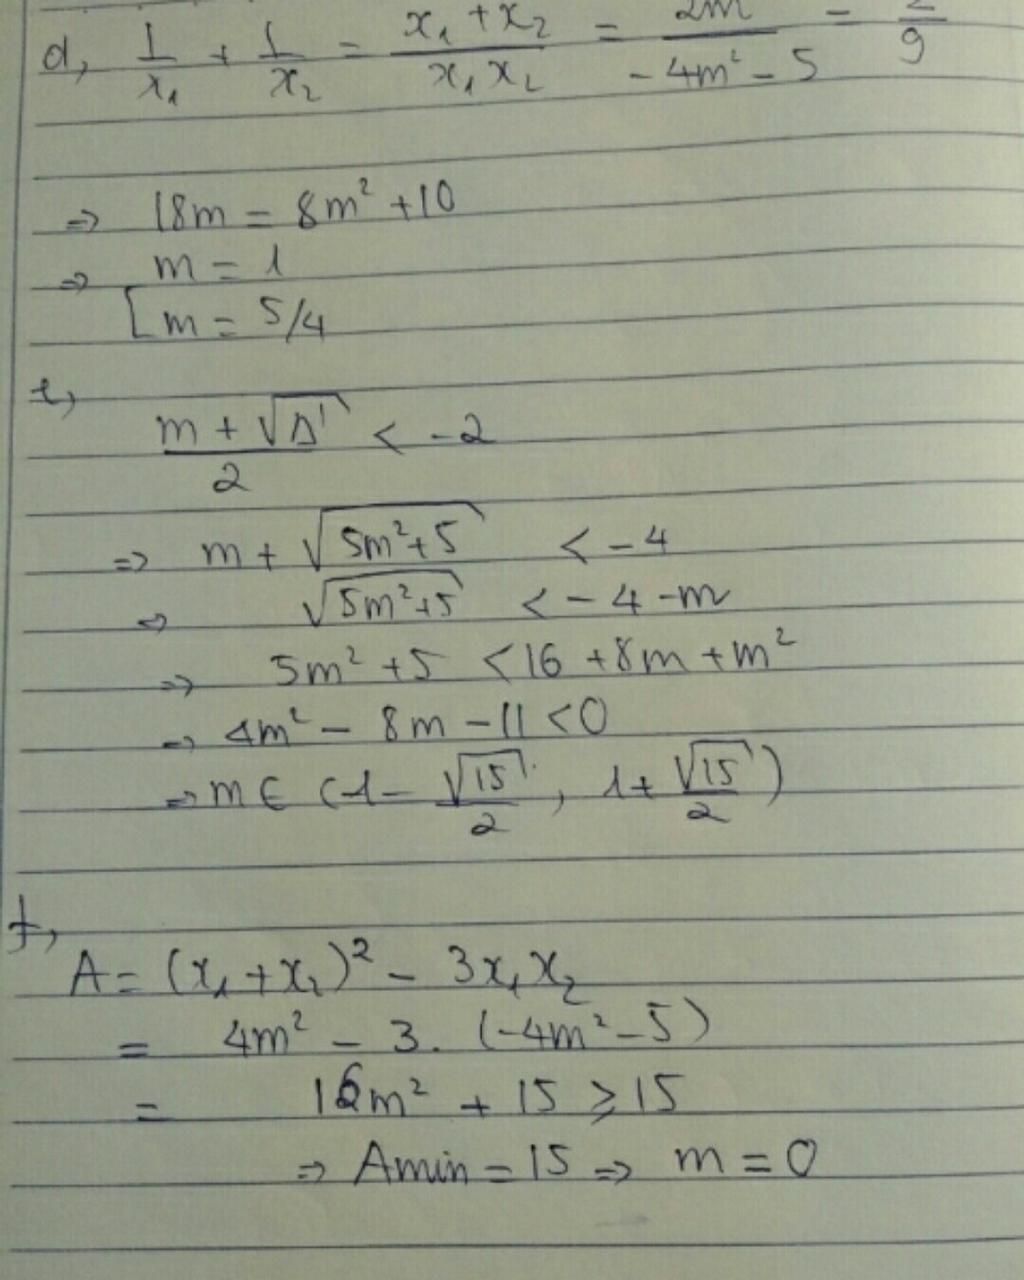 d, 1/x₁ + 1/x₂ = (x₁ + x₂)/(x₁ x₂) = 2m/(-4m² - 5) = 2/9
=> 18m = 8m² + 10
=> [ m = 1
m = 5/4
e,
(m + √Δ')/2 < -2
=> m + √(5m² + 5) < -4
=> √(5m² + 5) < -4 - m
=> 5m² + 5 < 16 + 8m + m²
=> 4m² - 8m - 11 < 0
=> m ∈ (1 - √15/2, 1 + √15/2)
f,
A = (x₁ + x₂)² - 3x₁x₂
= 4m² - 3. (-4m² - 5)
= 16m² + 15 ≥ 15
=> Amin = 15 => m = 0